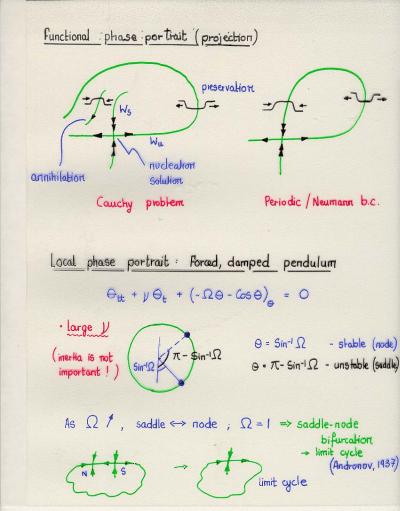 Functional phase portrait (projection)
preservation
Ws
Wu
annihilation
nucleation
solution
Cauchy problem
Periodic / Neumann b.c.
Local phase portrait : Forced, damped pendulum
Θtt + νΘt + (-ΩΘ - CosΘ)Θ = 0
• large ν
(inertia is not
important !)
Sin⁻¹Ω
π - Sin⁻¹Ω
Θ = Sin⁻¹Ω - stable (node)
Θ = π - Sin⁻¹Ω - unstable (saddle)
As Ω ↗, saddle ↔ node ; Ω = 1 ⇒ saddle-node
bifurcation
→ limit cycle
(Andronov, 1937)
N
S
→
limit cycle